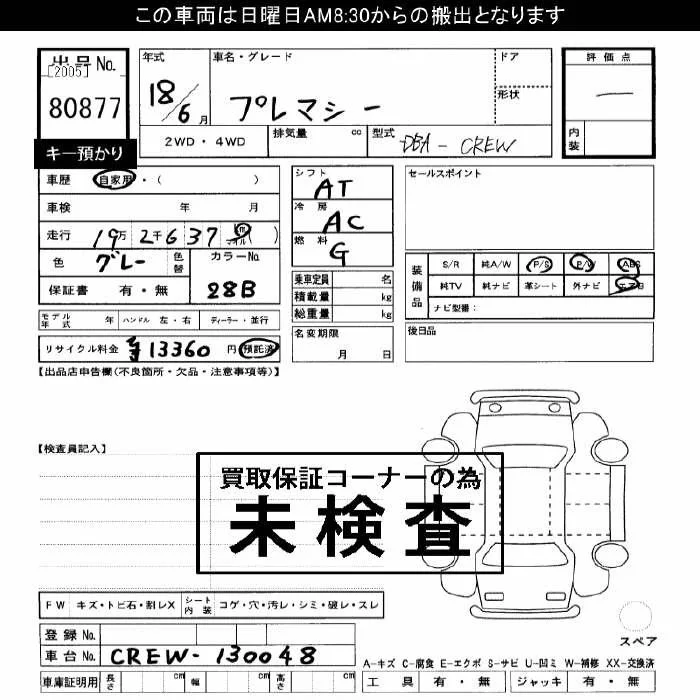 この車両は日曜日AM8:30からの搬出となります
出品No.
[2005]
80877
キー預かり
年式
18/6月
車名・グレード
プレマシー
ドア
形状
評価点
―
内装
2WD・4WD
排気量 cc
型式 DBA-CREW
車歴 自家用・( )
車検 年 月
走行 19万2千637 km マイル )
色 グレー 色替
カラーNo. 28B
保証書 有・無
シフト AT
冷房 AC
燃料 G
乗車定員 名
積載量 kg
総重量 kg
名変期限
月 日
セールスポイント
装備品
S/R 純A/W P/S P/W ABS
純TV 純ナビ 革シート 外ナビ エアB
ナビ型番:
後日品
モデル年式 年 ハンドル 左・右 ディーラー・並行
リサイクル料金 13360 円 預託済
【出品店申告欄(不良箇所・欠品・注意事項等)】
【検査員記入】
買取保証コーナーの為
未検査
FW キズ・トビ石・割レX シート内装 コゲ・穴・汚レ・シミ・破レ・スレ
登録No.
車台No. CREW-130048
車庫証明用 長さ cm 幅 cm 高さ cm
スペア
A-キズ C-腐食 E-エクボ S-サビ U-凹ミ W-補修 XX-交換済
工具 有・無 ジャッキ 有・無